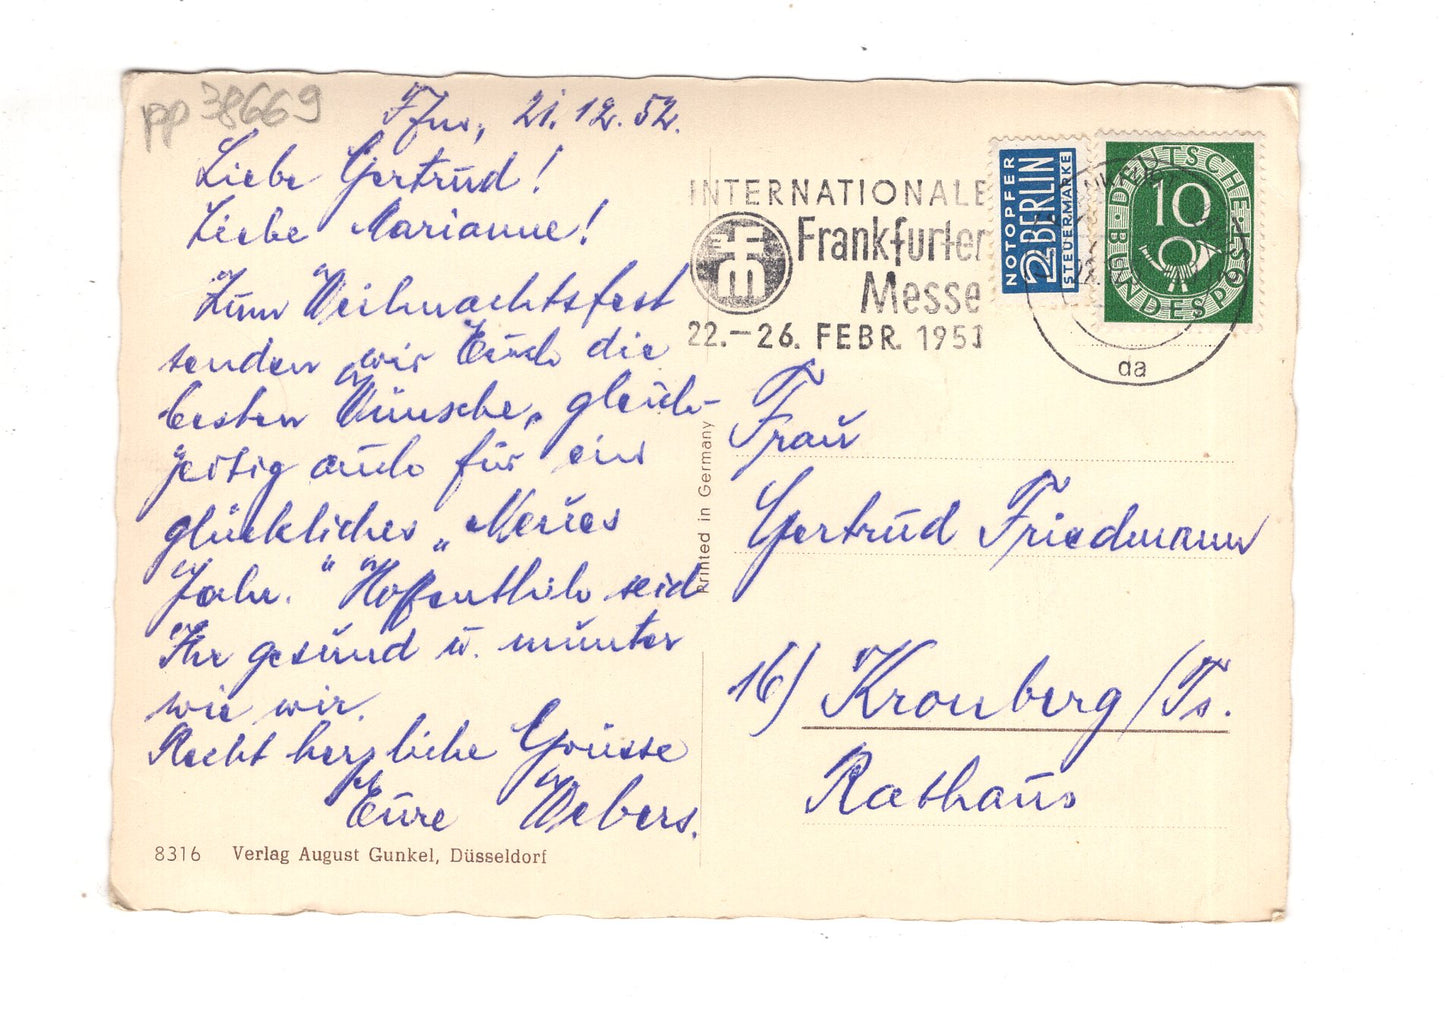 pp 38669
Ffm, 21.12.52.
Liebe Gertrud!
Liebe Marianne!
Zum Weihnachtsfest
senden wir Euch die
besten Wünsche, gleich-
zeitig auch für ein
glückliches „Neues
Jahr." Hoffentlich seid
Ihr gesund u. munter
wie wir.
Recht herzliche Grüsse
Eure Webers.
8316 Verlag August Gunkel, Düsseldorf
Printed in Germany
INTERNATIONALE
Frankfurter
Messe
22.–26. FEBR. 1953
NOTOPFER
2 BERLIN
STEUERMARKE
DEUTSCHE
BUNDESPOST
10
qa
Frau
Gertrud Friedmann
16) Kronberg/Ts.
Rathaus